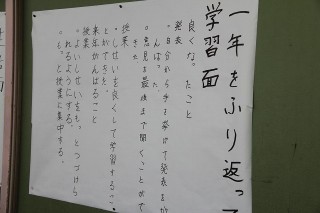 一年をふり返って
学習面
良くなったこと
発表
・自分から手を挙げて発表をが
んばった。
○意見を最後まで聞くことがで
きた
授業
・しせいを良くして学習するこ
とができた。
来年がんばること
授業
・よいしせいをもっとつづけら
れるようにする。
・もっと授業に集中する。